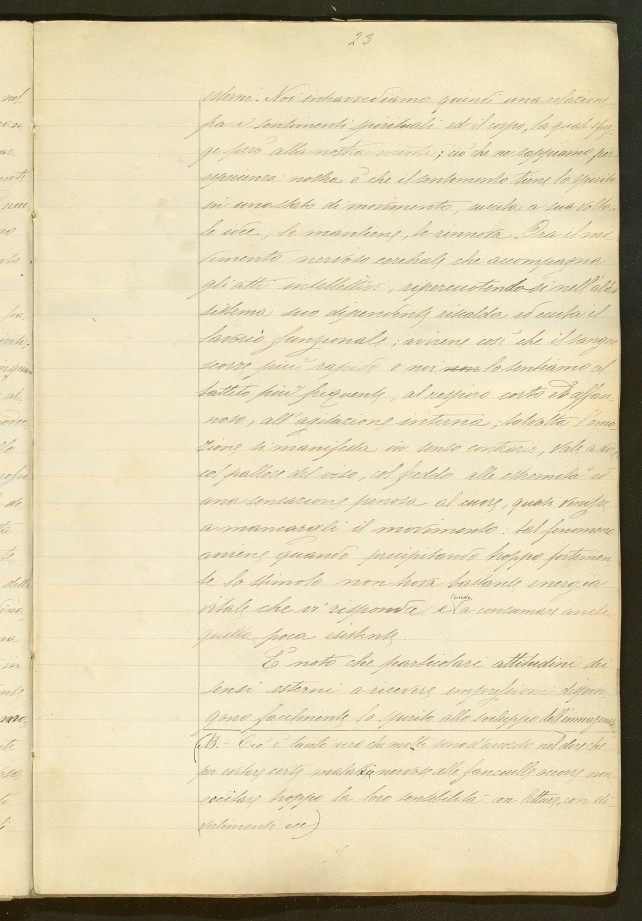 23
esterni. Noi intravvediamo quindi una relazione
fra i sentimenti spirituali ed il corpo, la quale sfug-
ge però alla nostra mente; ciò che ne sappiamo per
esperienza nostra è che il sentimento tiene lo spirito
in uno stato di movimento, suscita a sua volta
le idee, le mantiene, le rinnova. Ora il mo-
vimento nervoso cerebrale che accompagna
gli atti intellettivi, ripercuotendosi nell'altro
sistema suo dipendente riscalda ed eccita il
lavorio funzionale; avviene così che il sangue
scorre più rapido e noi non lo sentiamo al
battito più frequente, al respiro corto ed affan-
noso, all'agitazione interna; talvolta l'emo-
zione si manifesta in senso contrario, vale a dire
col pallore del viso, col freddo alle estremità ed
una sensazione penosa al cuore, quasi venisse
a mancargli il movimento: tal fenomeno
avviene quando precipitando troppo fortemen-
te lo stimolo non trova bastante energia
vitale che vi risponda e tende a consumare anche
quella poca esistente.
È noto che particolari attitudini dei
sensi esterni a ricevere impressioni dispon-
gono facilmente lo spirito allo sviluppo dell'immagina-
(B. - Ciò è tanto vero che molti sono d'accordo nel dire che
per evitare certe malattie nervose alle fanciulle occorre non
eccitare troppo la loro sensibilità con letture, con di-
vertimenti ecc)